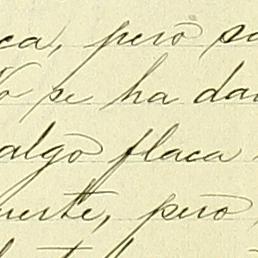 ca, pero
No se ha da
algo flaca
uerte, pero